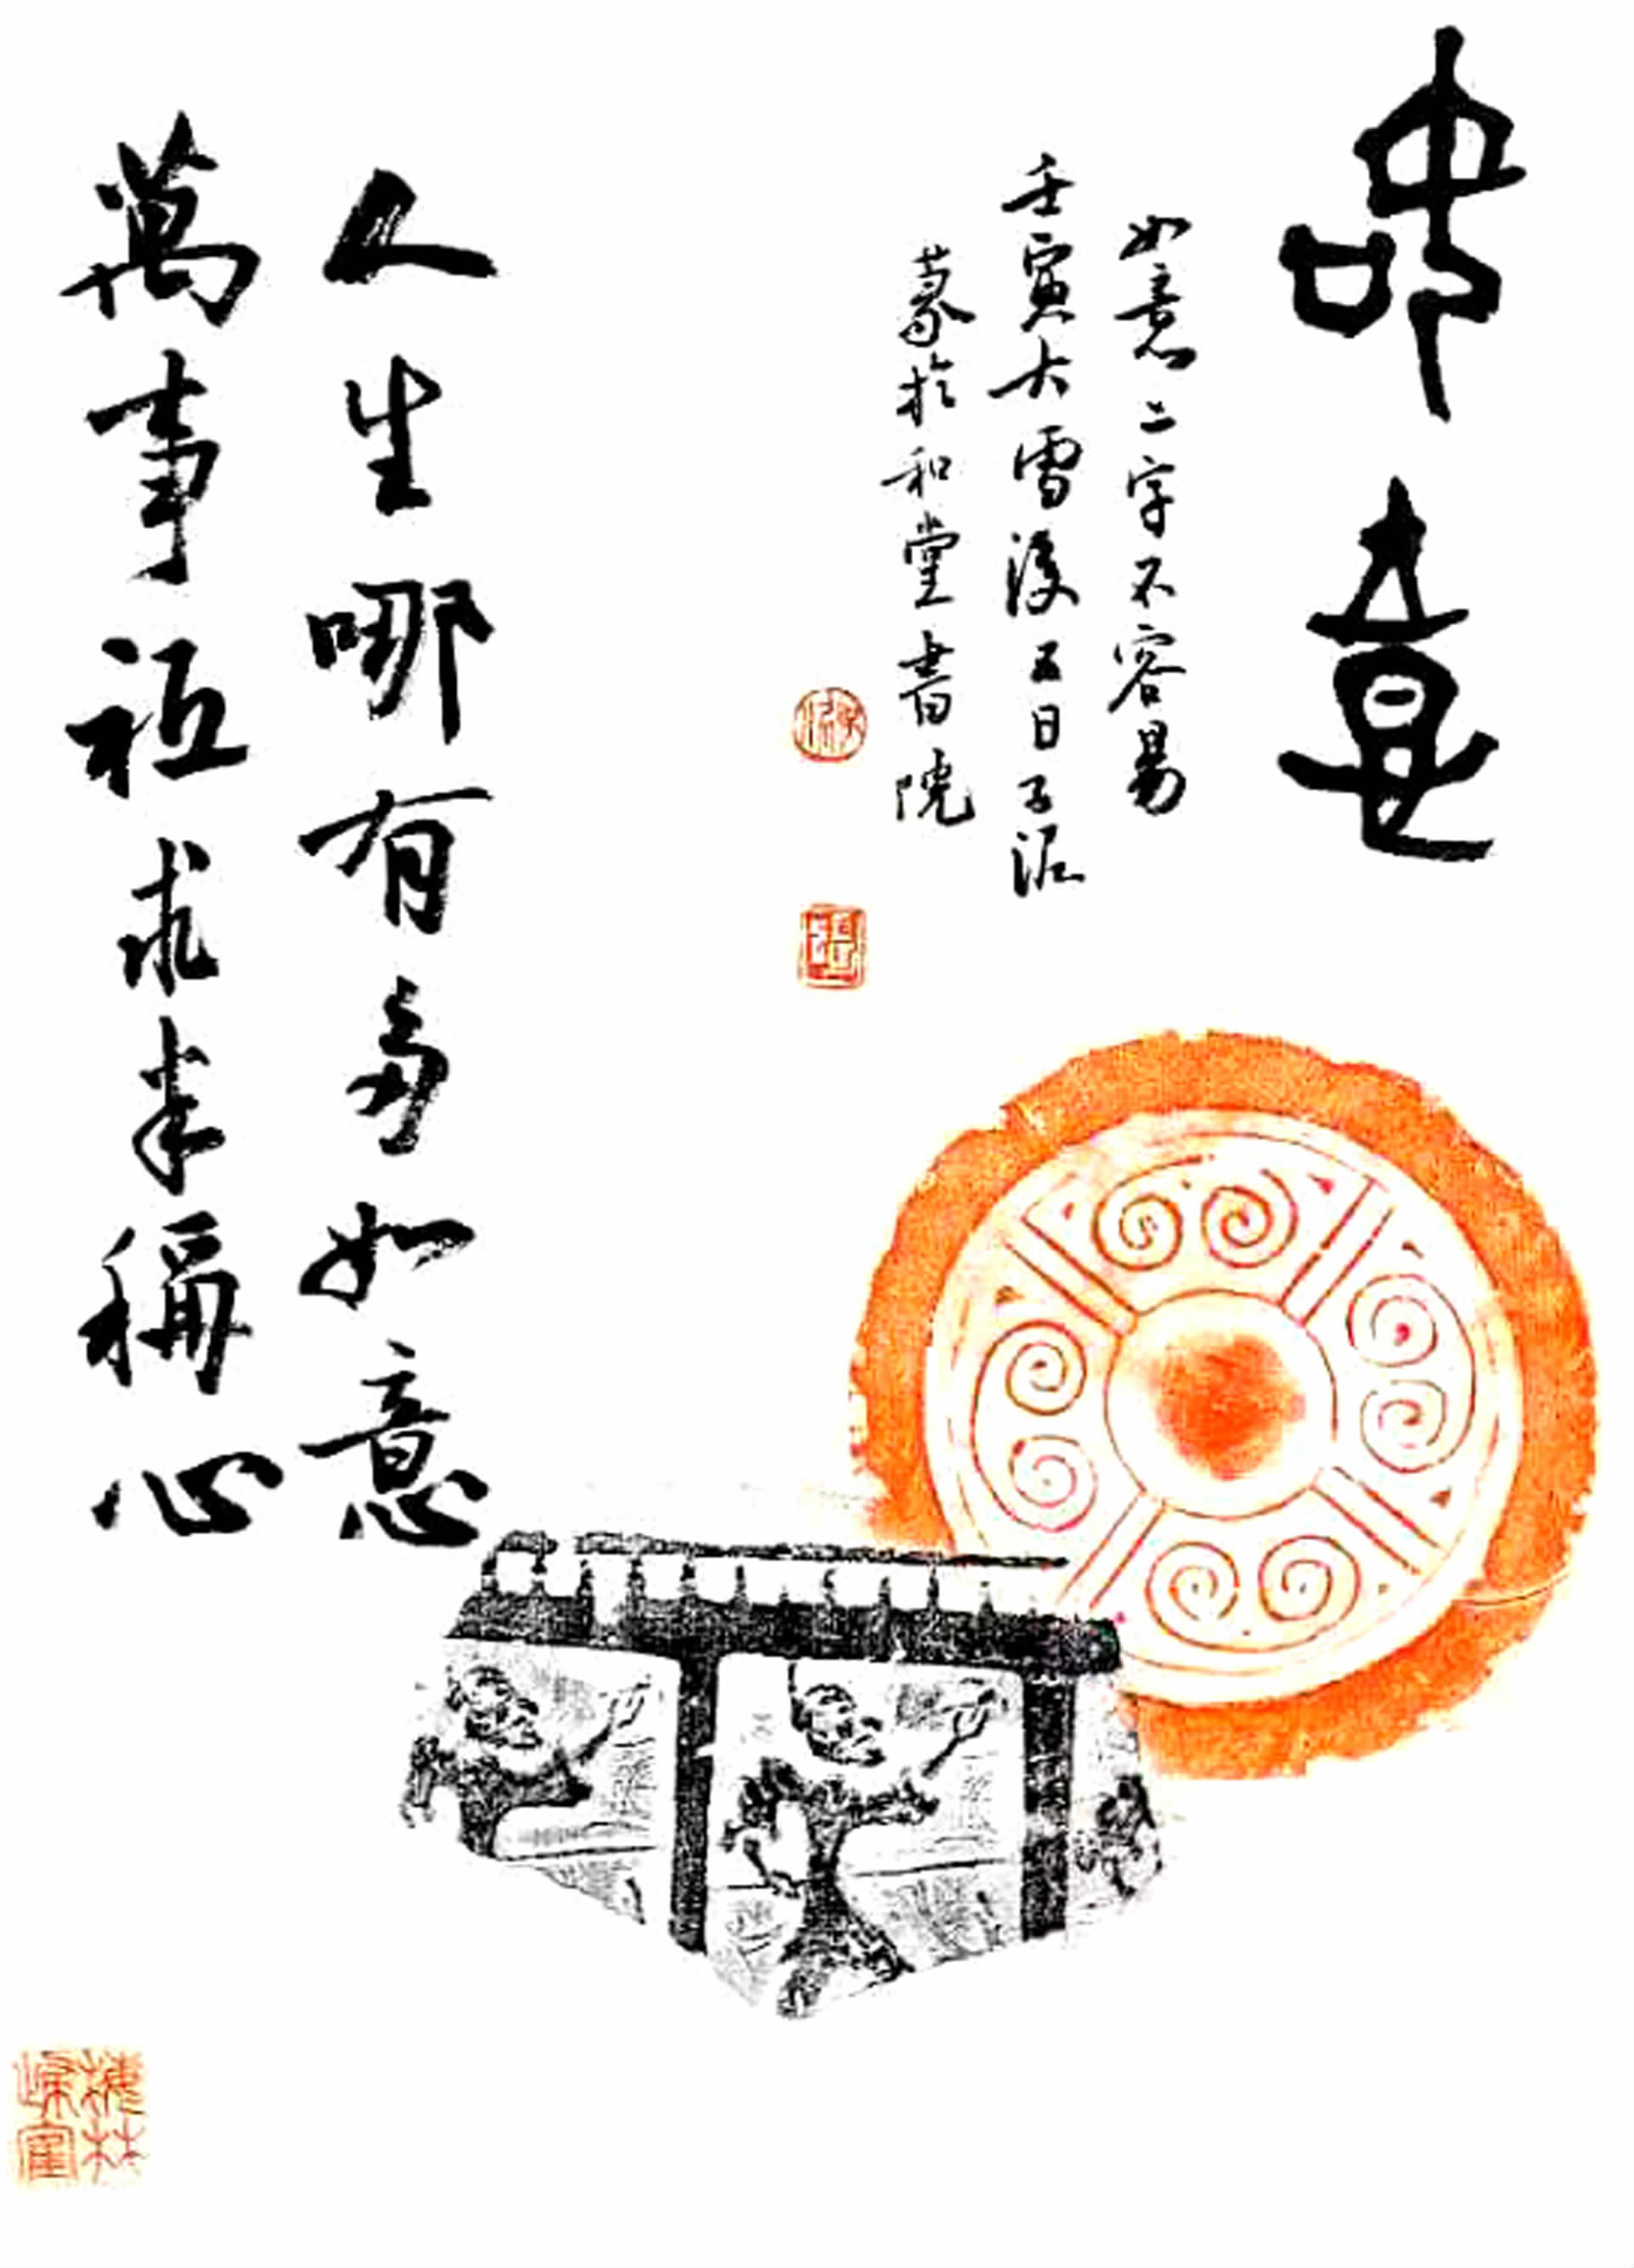 如意
如意二字不容易
壬寅大雪後五日子泥
篆於和堂書院
人生哪有多如意
萬事祇求半稱心